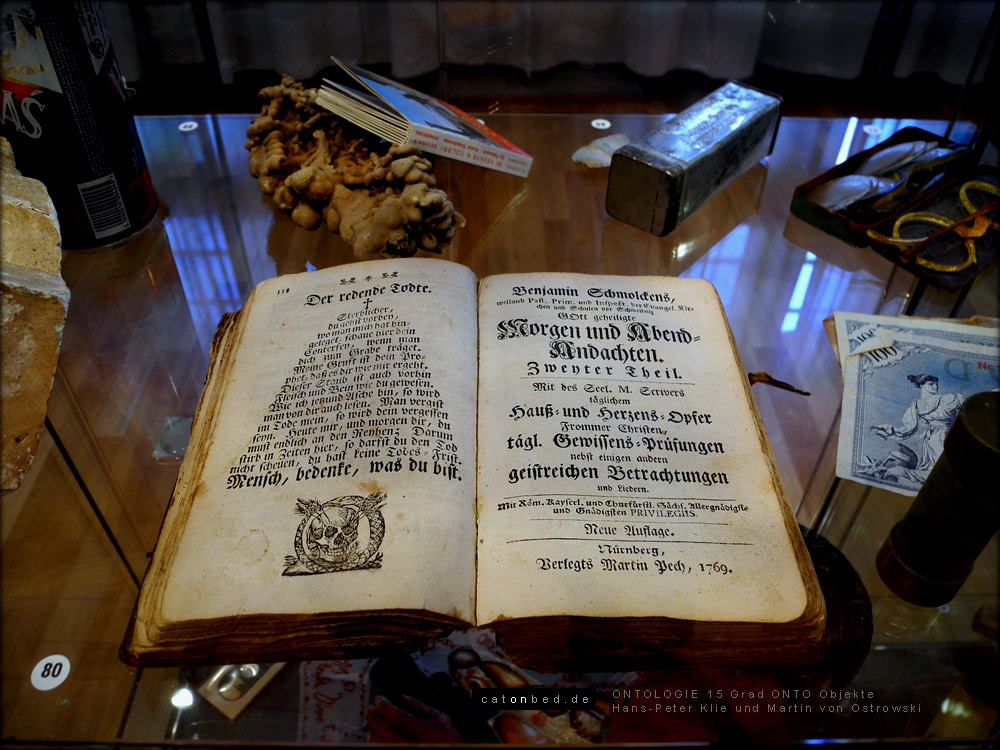 AŠ
118
Der redende Todte.
Sterbücher,
du geist vorbey,
wo man mich hat hin-
geleget, schaue hier dein
Conterfey, wenn man
dich zum Grabe träget.
Meine Gruft ist dein Pro-
phet, daß es dir wie mir ergeht.
Dieser Staub ist auch vorhin
Fleisch und Bein wie du gewesen.
Wie ich jetzund Asche bin, so wird
man von dir auch lesen. Man vergißt
im Tode mein, so wird dein vergessen
seyn. Heute mir, und morgen dir, du
must endlich an den Reyhen; Darum
stirb in Zeiten hier, so darfst du den Tod
nicht scheuen, du hast keine Todes-Frist.
Mensch, bedenke, was du bist.
Benjamin Schmolckens,
weiland Past. Prim. und Inspekt. der Evangel. Kir-
chen und Schulen vor Schweidnitz
GOtt geheiligte
Morgen und Abend-
Andachten.
Zweyter Theil.
Mit des Seel. M. Scrivers
täglichem
Hauß- und Herzens-Opfer
Frommer Christen,
tägl. Gewissens-Prüfungen
nebst einigen andern
geistreichen Betrachtungen
und Liedern.
Mit Röm. Kayserl. und Churfürstl. Sächs. Allergnädigst-
und Gnädigsten PRIVILEGIIS.
Neue Auflage.
Nürnberg,
Verlegts Martin Pech, 1769.
100
Nr
80
catonbed.de
ONTOLOGIE 15 Grad ONTO Objekte
Hans-Peter Klie und Martin von Ostrowski